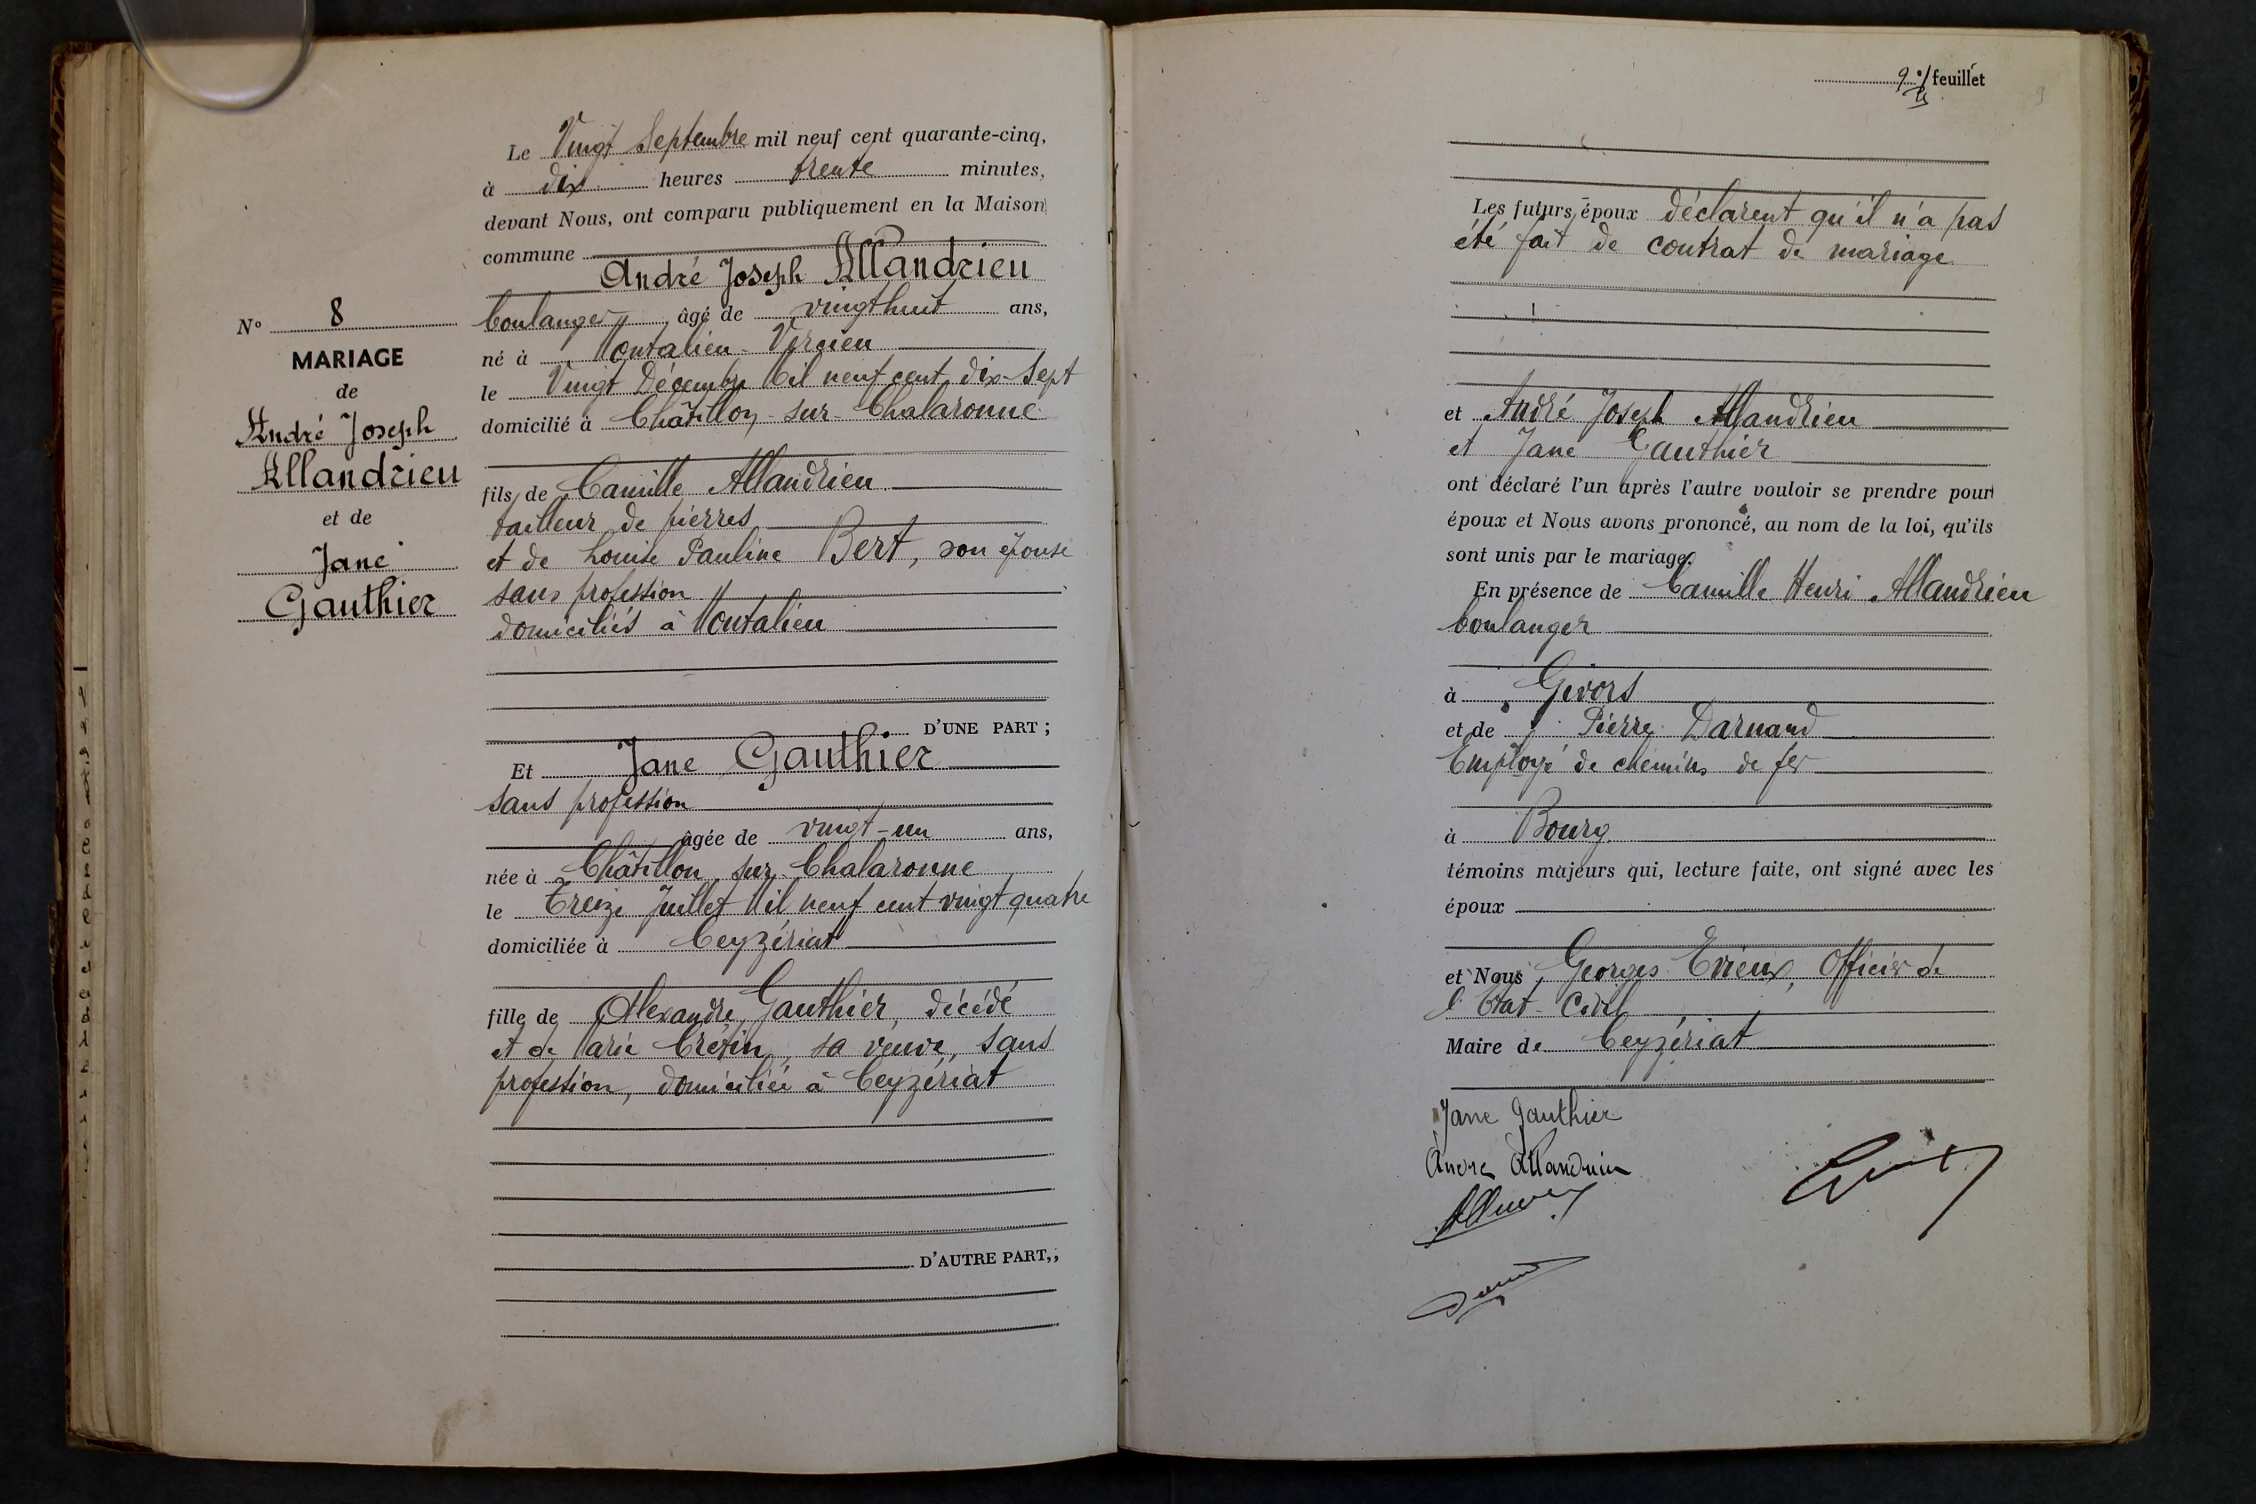 Le Vingt Septembre mil neuf cent quarante-cinq,
à dix heures trente minutes,
devant Nous, ont comparu publiquement en la Maison
commune
André Joseph Allandrieu
boulanger âgé de vingt huit ans,
né à Montalieu-Vercieu
le Vingt Décembre Mil neuf cent dix-sept
domicilié à Châtillon-sur-Chalaronne
fils de Camille Allandrieu
tailleur de pierres
et de Louise Pauline Bert, son épouse
sans profession
domiciliés à Montalieu
D'UNE PART ;
Et Jane Gauthier
sans profession
âgée de vingt-un ans,
née à Châtillon sur Chalaronne
le Treize Juillet Mil neuf cent vingt quatre
domiciliée à Ceyzériat
fille de Alexandre Gauthier, décédé
et de Marie Crétin, sa veuve, sans
profession, domiciliée à Ceyzériat
D'AUTRE PART,;
N° 8
MARIAGE
de
André Joseph
Allandrieu
et de
Jane
Gauthier
9e feuillet
9
Les futurs époux déclarent qu'il n'a pas
été fait de contrat de mariage
et André Joseph Allandrieu
et Jane Gauthier
ont déclaré l'un après l'autre vouloir se prendre pour
époux et Nous avons prononcé, au nom de la loi, qu'ils
sont unis par le mariage.
En présence de Camille Henri Allandrieu
boulanger
à Givors
et de Pierre Darnand
Employé de chemins de fer
à Bourg
témoins majeurs qui, lecture faite, ont signé avec les
époux
et Nous Georges Erieux, Officier de
l'Etat-Civil
Maire de Ceyzériat
Jane Gauthier
André Allandrieu